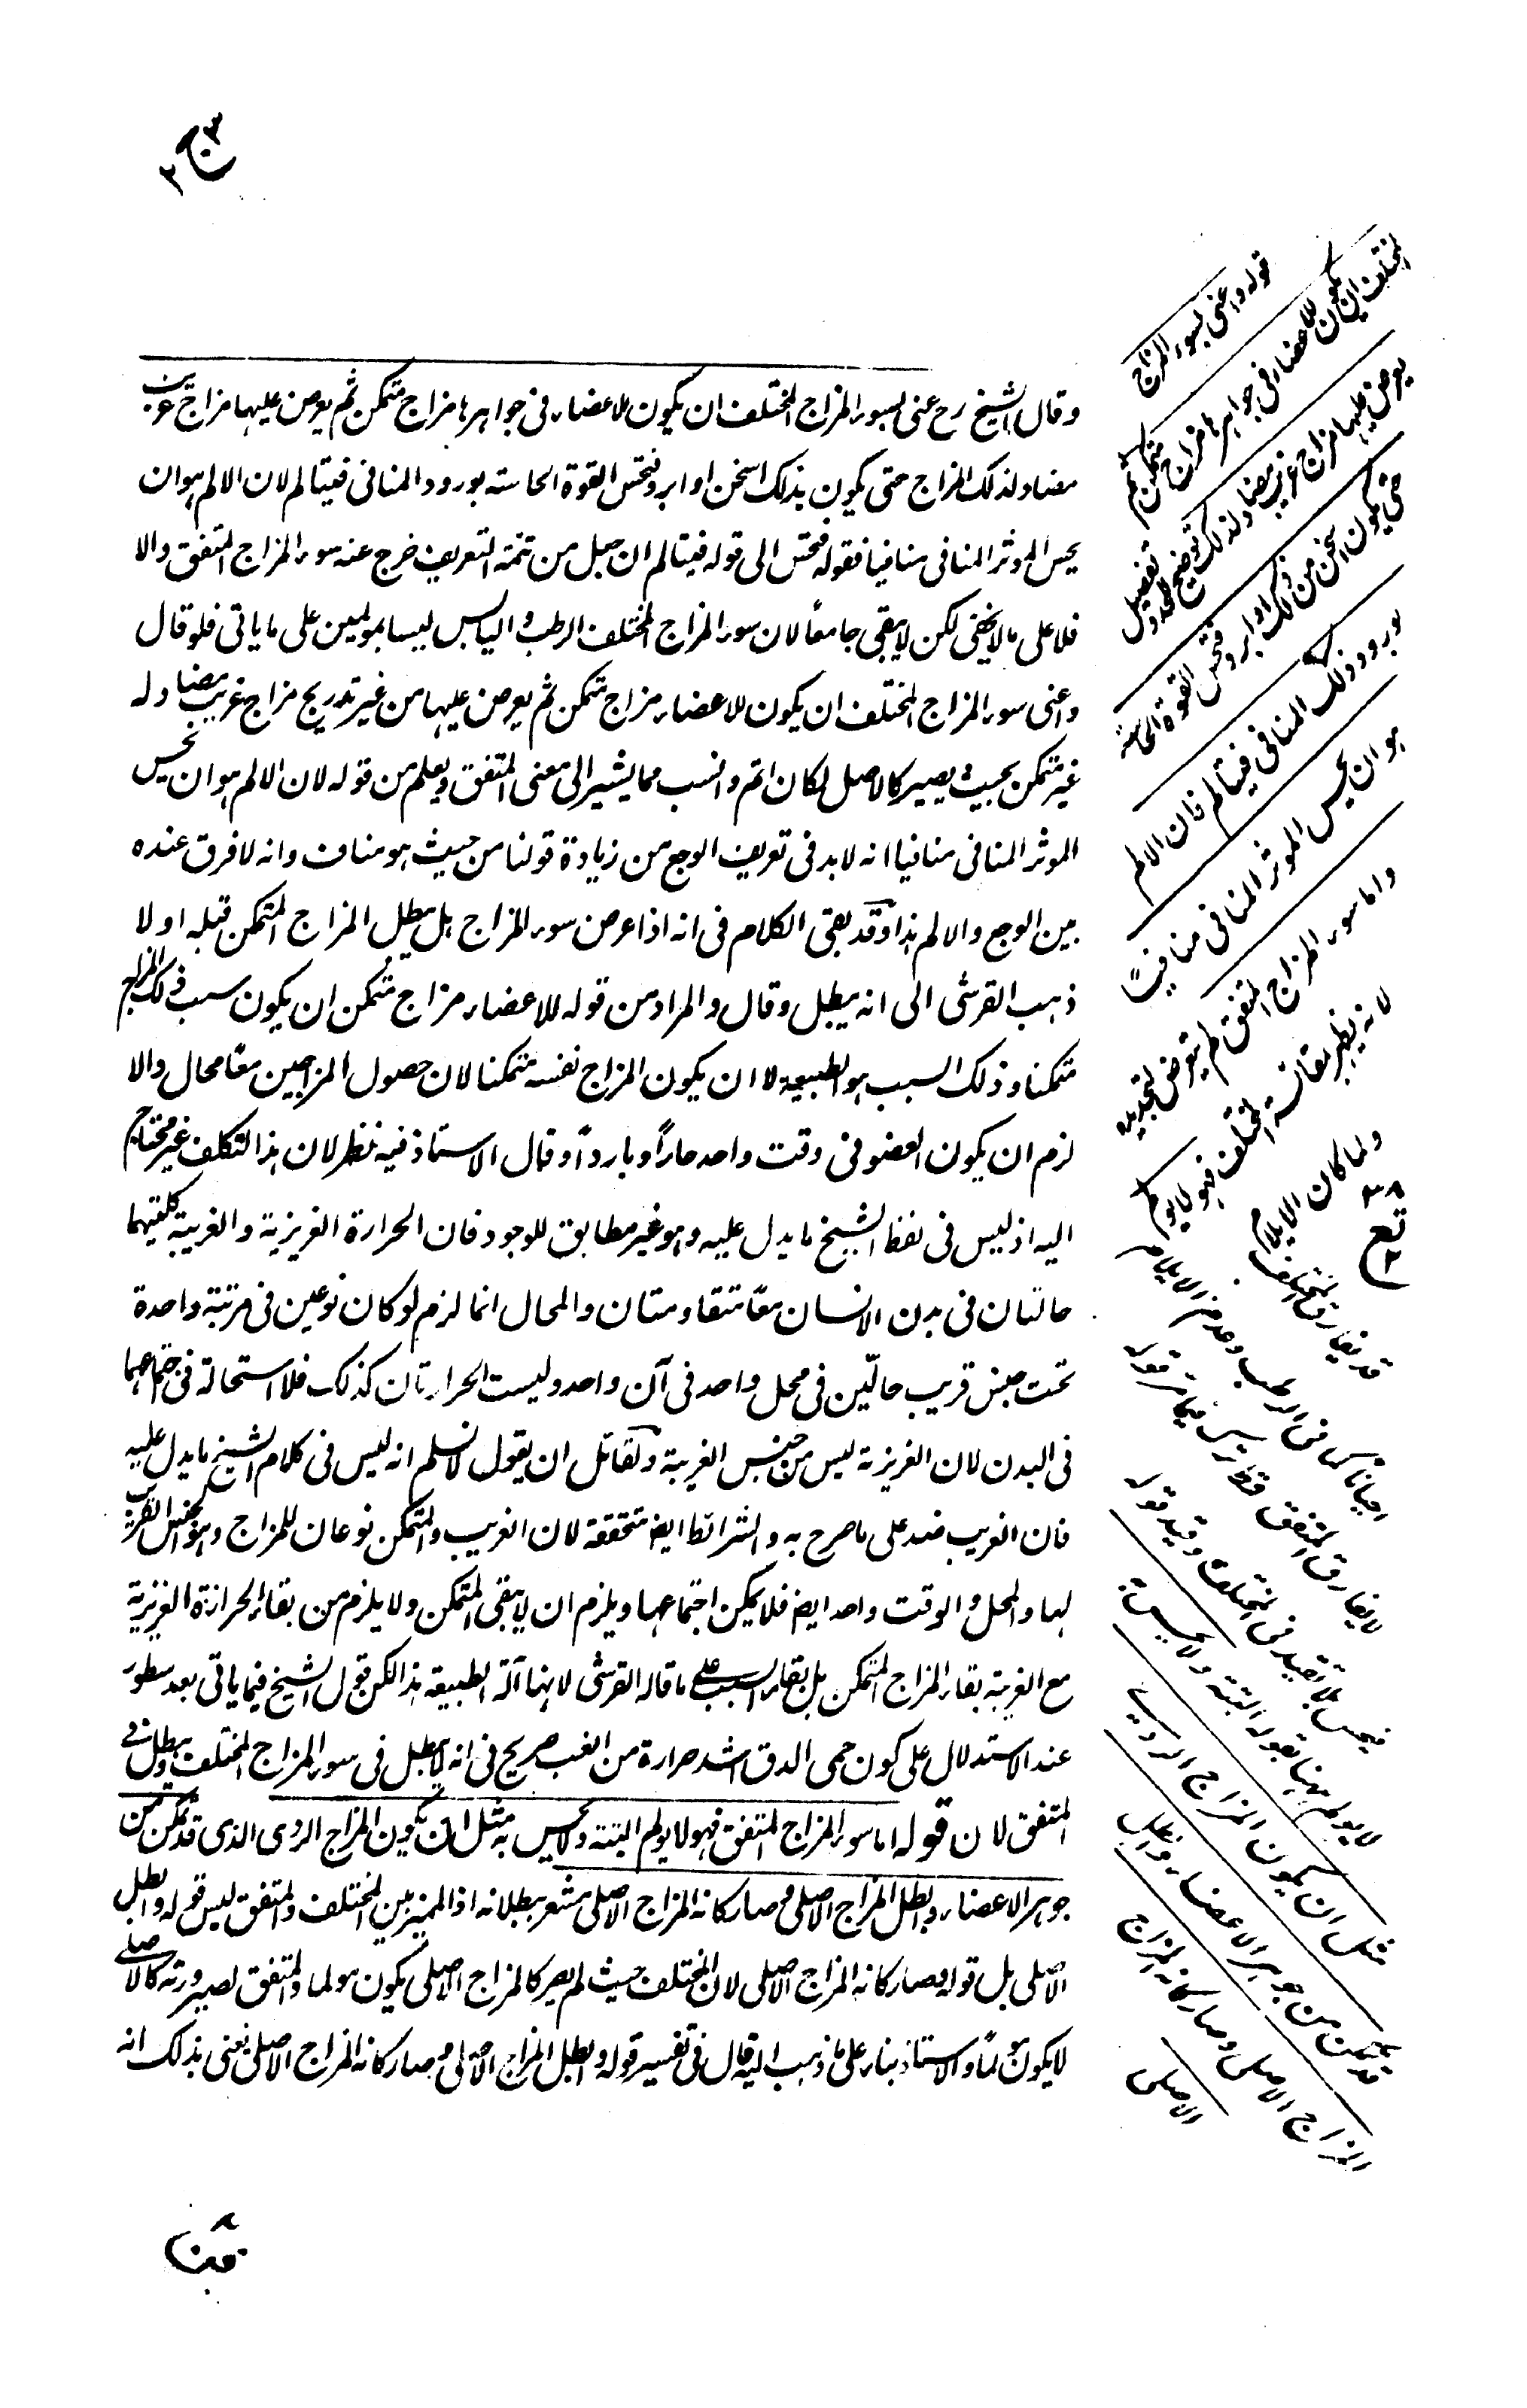 وقال الشيخ رح عنى بسوء المزاج المختلف ان يكون للاعضاء فى جواهرها مزاج متمكن ثم يعرض عليها مزاج غريب
مضاد لذلك المزاج حتى يكون بذلك اسخن او ابرد فتحس القوة الحاسة بورود المنافى فيتالم لان الالم هو ان
يحس الموثر المنافى منافيا فقوله فتحس الى قوله فيتالم ان جعل من تتمة التعريف خرج عنه سوء المزاج المتفق والا
فلا على ما لا يخفى لكن لا يبقى جامعًا لان سوء المزاج المختلف الرطب و اليابس ليسا بمولمين على ما ياتى فلو قال
واعنى سوء المزاج المختلف ان يكون للاعضاء مزاج متمكن ثم يعرض عليها من غير تدريج مزاج غريب مضاد له
غير متمكن بحيث يصير كالاصل لكان اتم وانسب مما يشير الى معنى المتفق ويعلم من قوله لان الالم هو ان تحس
الموثر المنافى منافيا انه لا بد فى تعريف الوجع من زيادة قولنا من حيث هو مناف وانه لا فرق عنده
بين الوجع والالم هذا وقد بقى الكلام فى انه اذا عرض سوء المزاج هل يبطل المزاج المتمكن قبله او لا
ذهب القرشى الى انه يبطل وقال والمراد من قوله للاعضاء مزاج متمكن ان يكون سبب ذلك المزاج
متمكنا وذلك السبب هو الطبيعة لا ان يكون المزاج نفسه متمكنا لان حصول المزاجين معًا محال والا
لزم ان يكون العضو فى وقت واحد حارًا وباردًا وقال الاستاذ فيه نظر لان هذا التكلف غير محتاج
اليه اذ ليس فى لفظ الشيخ ما يدل عليه وهو غير مطابق للوجود فان الحرارة الغريزية والغريبة كلتيهما
حالتان فى بدن الانسان معًا متقاومتان والمحال انما لزم لو كان نوعين فى مرتبة واحدة
تحت جنس قريب حالّين فى محل واحد فى آن واحد وليست الحرارتان كذلك فلا استحالة فى اجتماعهما
فى البدن لان الغريزية ليس من جنس الغريبة ولقائل ان يقول لا نسلم انه ليس فى كلام الشيخ ما يدل عليه
فان الغريب ضد على ما صرح به والشرائط ايضا متحققة لان الغريب والمتمكن نوعان للمزاج وهو الجنس القريب
لهما والمحل والوقت واحد ايضا فلا يمكن اجتماعهما ويلزم ان لا يبقى المتمكن ولا يلزم من بقاء الحرارة الغريزية
مع الغريبة بقاء المزاج المتمكن بل بقاء السبب على ما قاله القرشى لانها آلة الطبيعة هذا لكن قول الشيخ فيما ياتى بعد سطور
عند الاستدلال على كون حمى الدق اشد حرارة من الغب صريح فى انه لا يبطل فى سوء المزاج المختلف ويبطل فى
المتفق لان قوله اما سوء المزاج المتفق فهو لا يولم البتة ولا يحس به مثل ان يكون المزاج الردى الذى قد تمكن من
جوهر الاعضاء وابطل المزاج الاصلى وصار كانه المزاج الاصلى مشعر ببطلانه اذ المميز بين المختلف والمتفق ليس قوله وابطل
الاصلى بل قوله وصار كانه المزاج الاصلى لان المختلف حيث لم يصر كالمزاج الاصلى يكون مولما والمتفق لصيرورته كالاصلى
لا يكون مولمًا والاستاذ بناء على ما ذهب اليه قال فى تفسير قوله وابطل المزاج الاصلى وصار كانه المزاج الاصلى يعنى بذلك انه
قوله واعنى بسوء المزاج
المختلف ان يكون للاعضاء فى جواهرها مزاج متمكن ثم
يعرض عليها مزاج غريب مضاد لذلك
حتى يكون اسخن من ذلك او ابرد فتحس القوة الحاسة
بورود ذلك المنافى فيتالم فان الالم
هو ان يحس الموثر المنافى منافيًا
واما سوء المزاج المتفق لم يتعرض لتحديده
لانه يظهر بمقايسة المختلف فهو لا يولم
ولما كان الايلام
قد يفارق المختلف
لا يولم
مثل ان يكون المزاج الردى
قد تمكن من جوهر الاعضاء وابطل
المزاج الاصلى وصار كانه المزاج
الاصلى